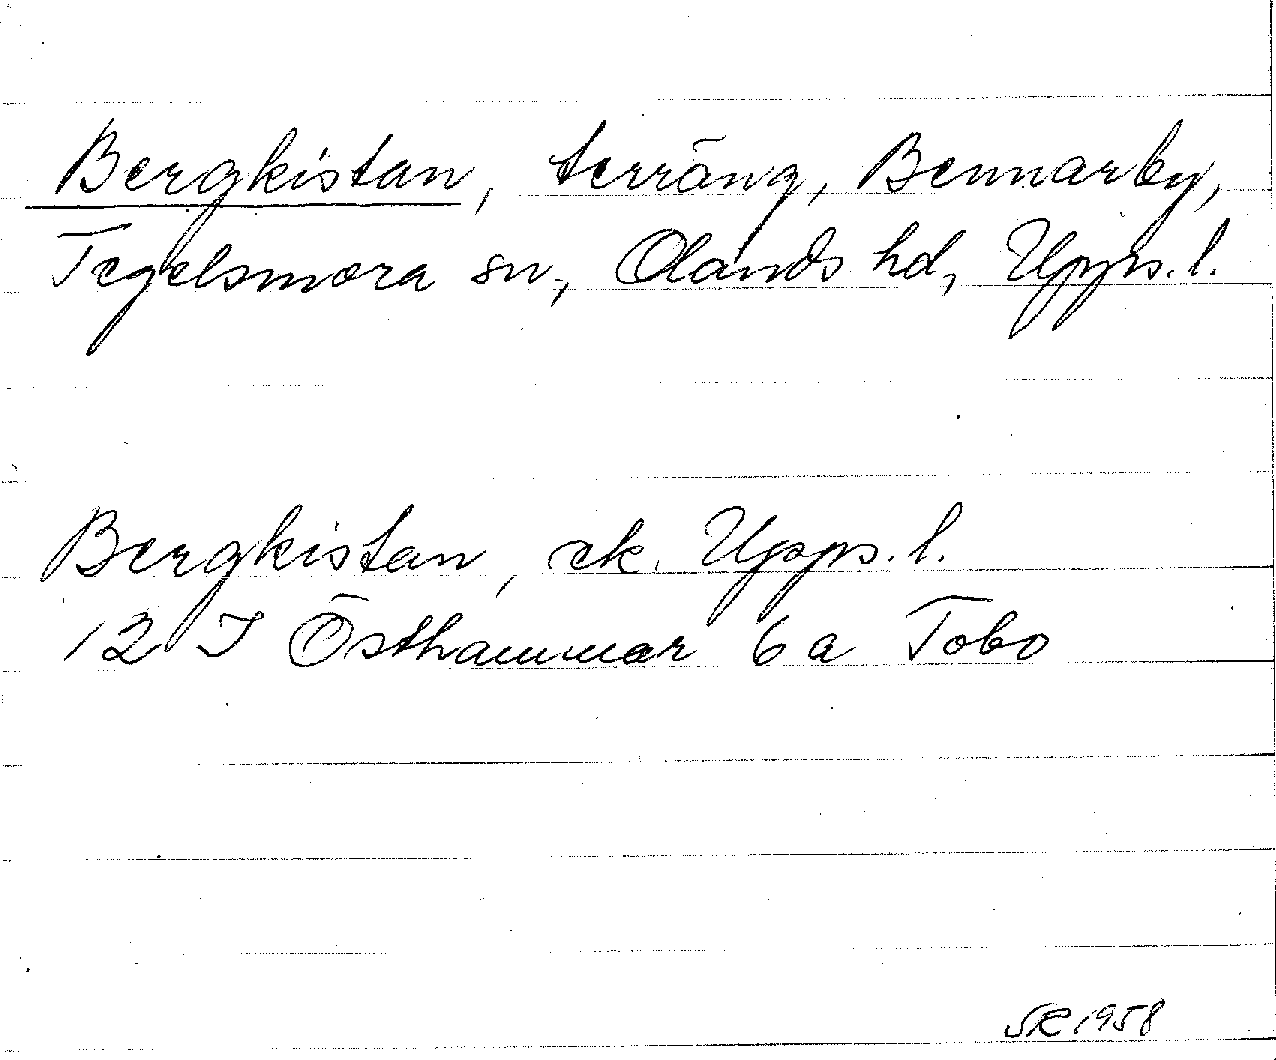 Bergkistan, terräng, Bennarby,
Tegelsmora sn, Olands hd, Upps. l.
Bergkistan, ek. Upps. l.
12 I Östhammar 6 a Tobo
SR 1958